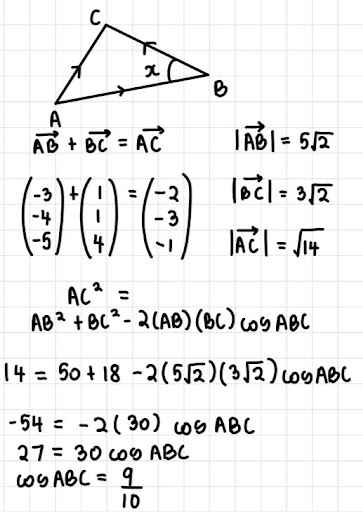 C
x
B
A
AB + BC = AC
|AB| = 5√2
(-3 -4 -5) + (1 1 4) = (-2 -3 -1)
|BC| = 3√2
|AC| = √14
AC² =
AB² + BC² - 2(AB)(BC) cos ABC
14 = 50 + 18 - 2(5√2)(3√2) cos ABC
-54 = -2(30) cos ABC
27 = 30 cos ABC
cos ABC = 9/10